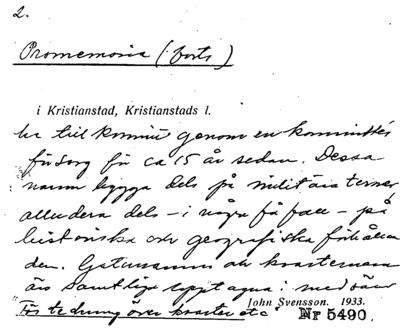 2.
Promemoria (forts)
i Kristianstad, Kristianstads l.
ha tillkommit genom en kommittés
försorg för ca 15 år sedan. Dessa
namn bygga dels på militära termer
alludera dels – i några få fall – på
historiska och geografiska förhållan
den. Gatunamn och kvartersnamn
äro samtliga upptagna i
över kvarter etc"
John Svensson. 1933.
Nr 5490.